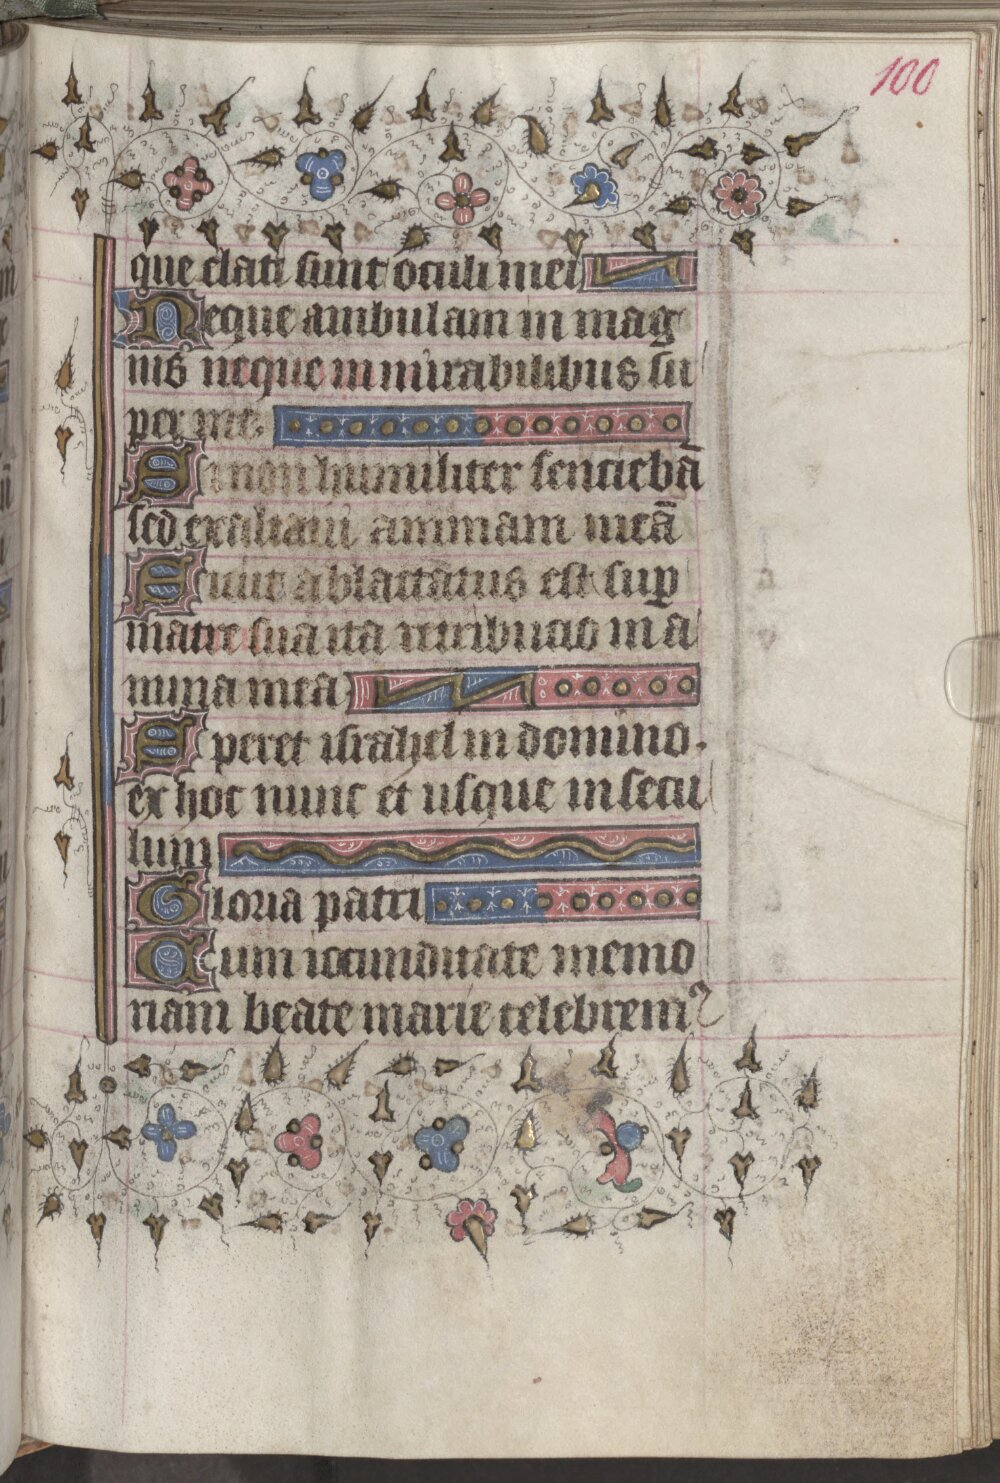 100
que elati sunt oculi mei
Neque ambulaui in mag
nis neque in mirabilibus su
per me.
Si non humiliter sentiebā
sed exaltaui animam meā
Sicut ablactatus est sup̱
matre sua ita retribucio in a
nima mea
Speret israhel in domino.
ex hoc nunc et usque in secu
lum
Gloria patri
Cum iocunditate memo
riam beate marie celebrem᷒